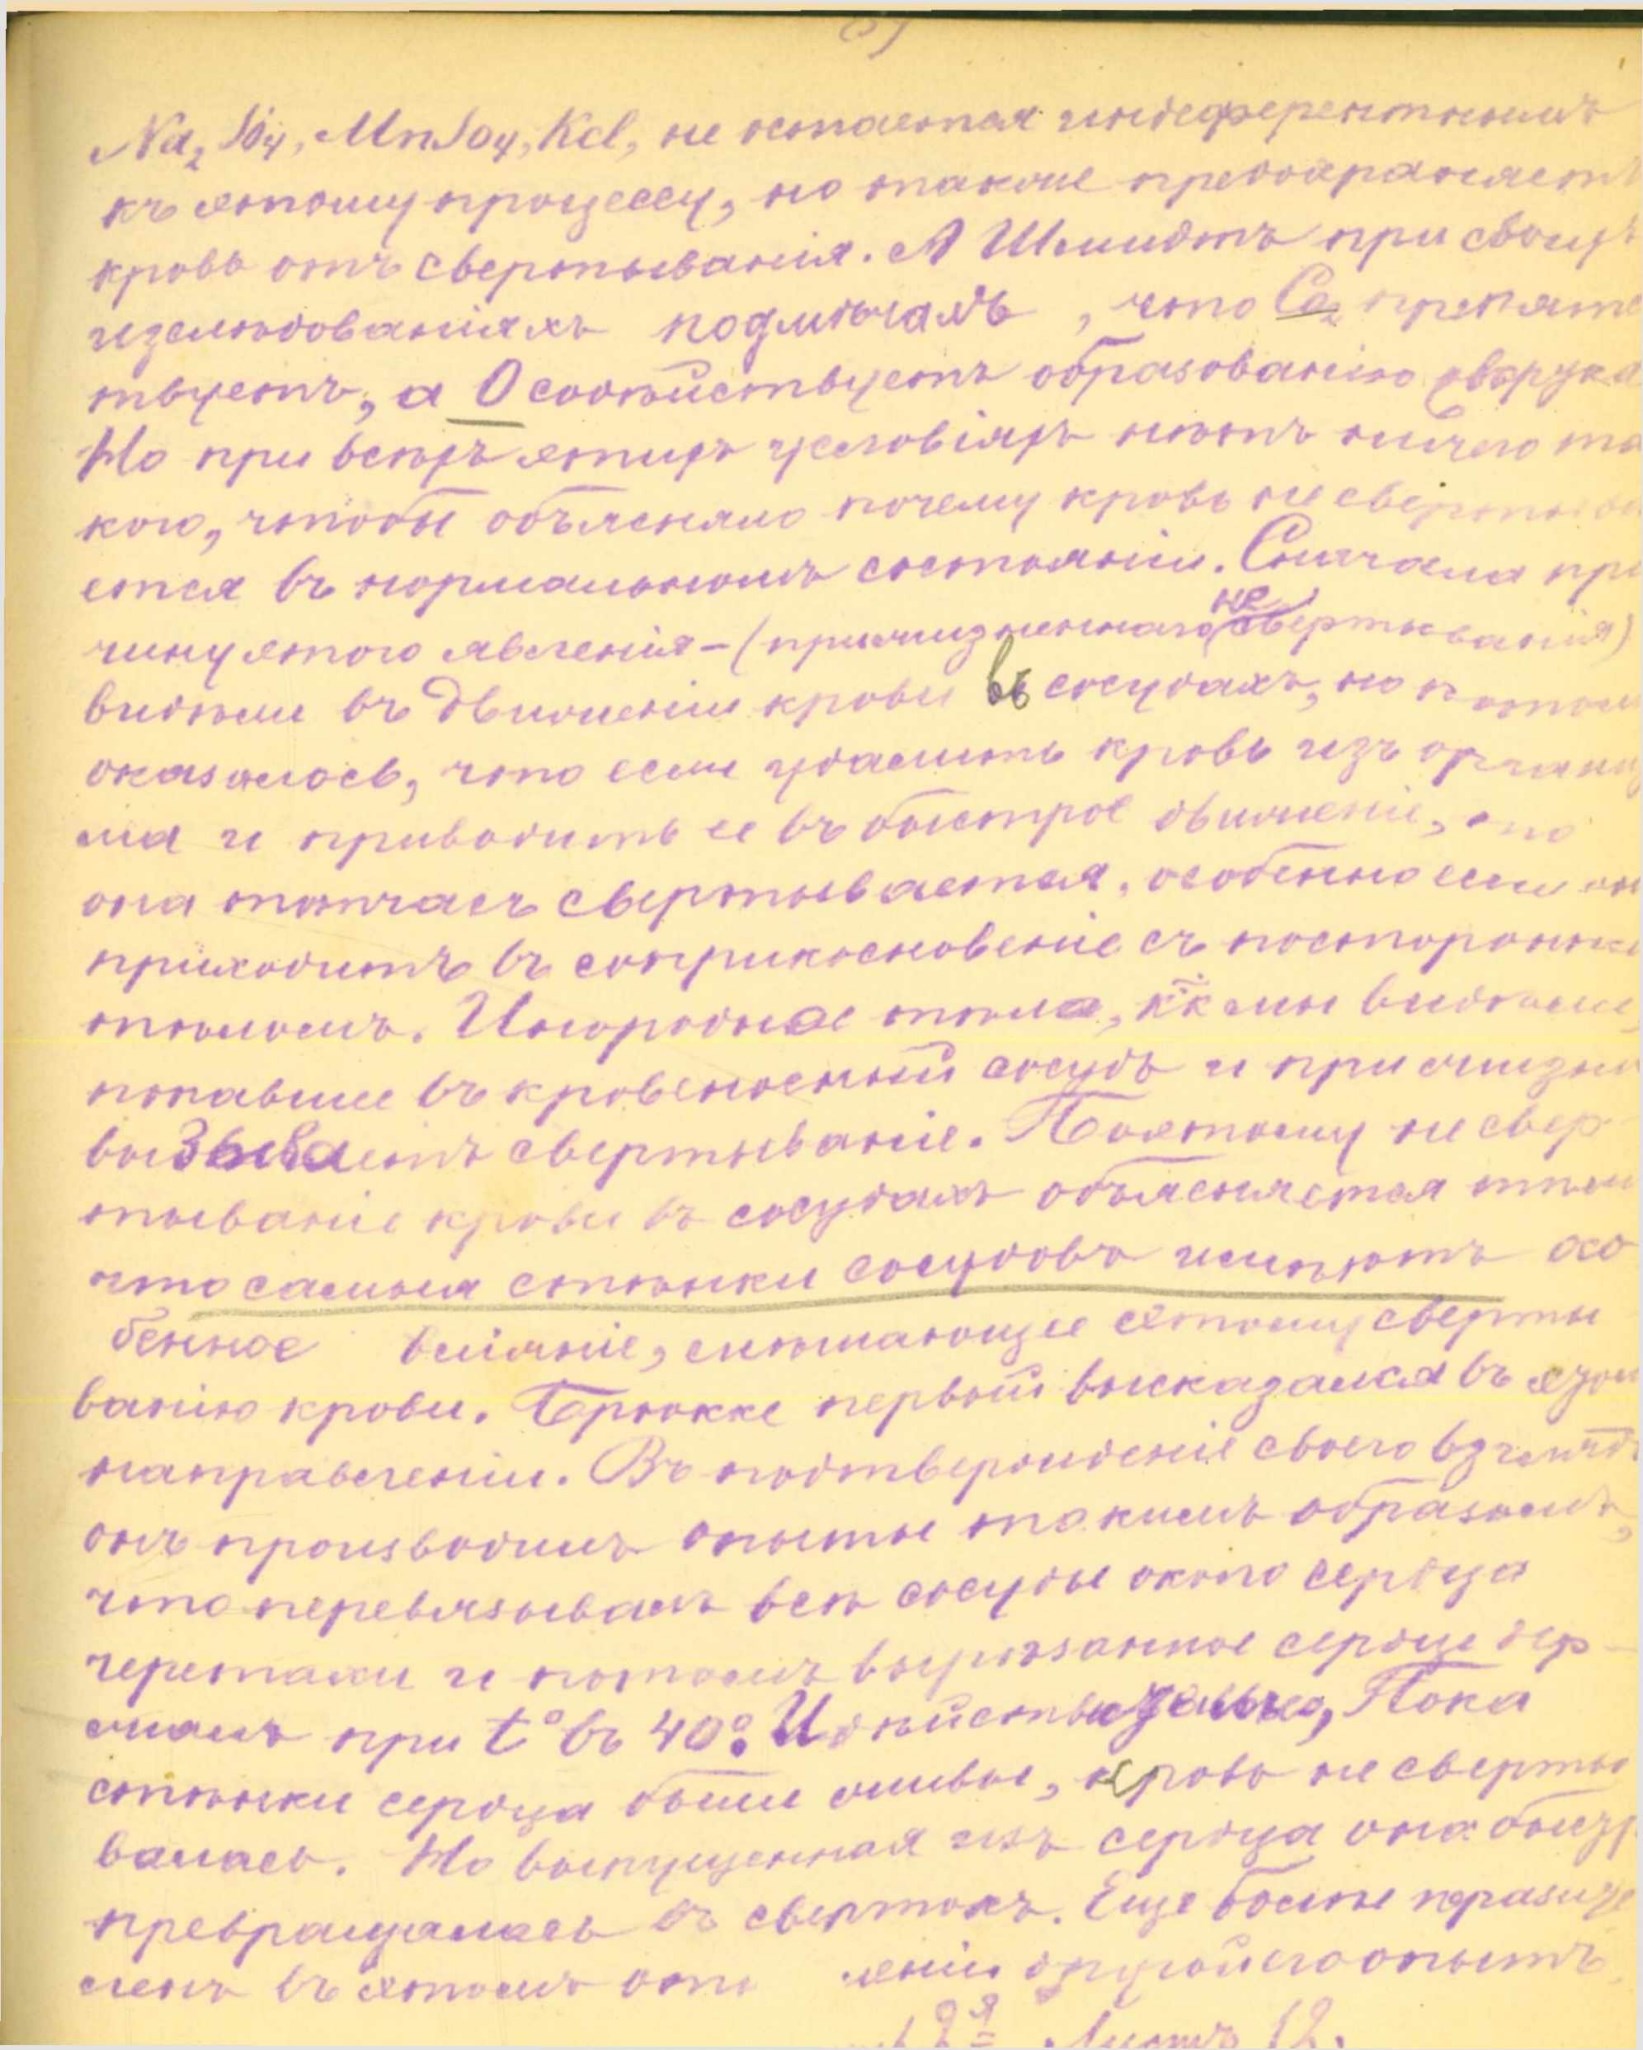 Na₂So₄, MnSo₄, Kcl, не остается индеферентнымъ
къ этому процессу, но также предохраняетъ
кровь отъ свертыванія. А Шмидтъ при своихъ
изслѣдованіяхъ подмѣчалъ, что Co₂ препятс
твуетъ, а О содѣйствуетъ образованію
Но при всѣхъ этихъ условіяхъ нѣтъ ничего та
кого, чтобы объясняло почему кровь не свертыва
ется въ нормальномъ состояніи. Сначала при
чину этого явленія – (прижизненнаго не свертыванія)
видѣли въ движеніи крови въ сосудахъ, но потом
оказалось, что если удалить кровь изъ организ
ма и приводить ее въ быстрое движеніе, то
она тотчасъ свертывается, особенно если она
приходитъ въ соприкосновеніе съ посторонни
тѣломъ. Инородное тѣло, кк мы видѣли,
попавшее въ кровеносный сосудъ и при жизни
вызываетъ свертываніе. Поэтому не свер
тываніе крови въ сосудахъ объясняется тѣм
что самыя стѣнки сосудовъ имѣютъ осо
бенное вліяніе, мѣшающее этому сверты
ванію крови. Брюкке первый высказался въ этом
направленіи. Въ подтвержденіе своего взгляда
онъ производилъ опыты такимъ образомъ,
что перевязывалъ всѣ сосуды около сердца
черепахи и потомъ вырѣзанное сердце дер
жалъ при t° въ 40°. И дѣйствительно, Пока
стѣнки сердца были живы, кровь не сверты
валась. Но выпущенная изъ сердца она быстр
превращалась въ свертокъ. Еще болѣе поразите
ленъ въ этомъ отно шеніи другой его опытъ.
2я Листъ 12.